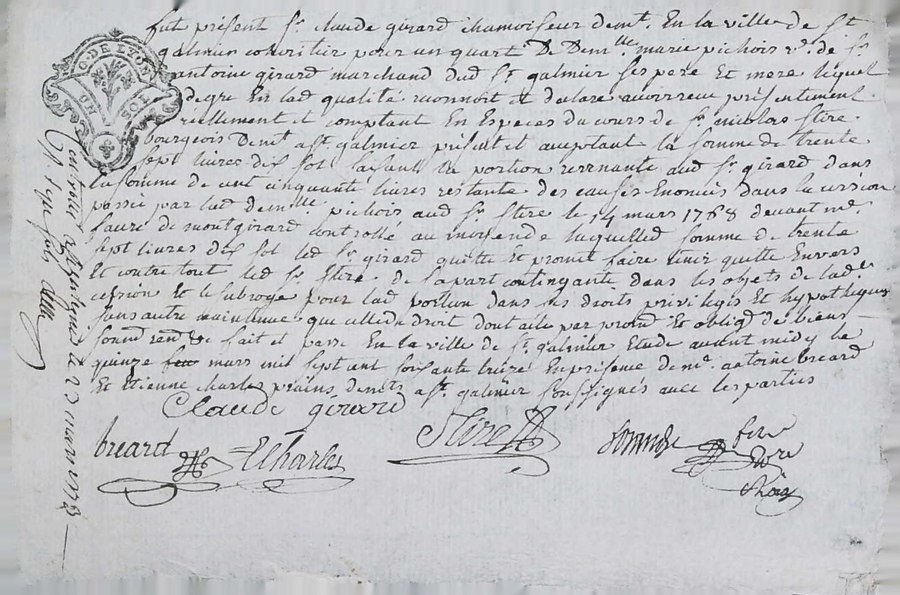 fut présent Sr. claude girard chamoiseur demt. En la ville de St
galmier coheritier pour un quart De Demlle marie pichois ve. de Sr
antoine girard marchand dud St. galmier ses pere Et mere lequel
de gre En lad qualité reconnoit et declare avoir receu présentement
reellement et comptant En Especes du cours de Sr. nicolas Stire
bourgeois Demt a St. galmier présent et acceptant la somme de trente
sept livres dix sol faisant la portion revenante aud Sr. girard dans
la somme de cent cinquante livres restante des causes Enoncées dans la cession
passée par lad demlle pichois aud Sr Stire le 14 mars 1768 devant me.
faure de montgirard controllé au moyen de laquelled somme de trente
sept livres dix sol led Sr. girard quitte et promit faire tenir quitte Envers
Et contre tout led Sr. Stire De sa part contingante dans les objets de lade
cession Et le subroge pour lad portion dans ses droits privilegés Et hypotheques
sans autre maintenue que de droit dont acte par promd Et obligd de biens
soumd rend & fait et passé En la ville de St. galmier Etude avant midy le
quinze mars mil sept cent soixante treize En présence de me. antoine breard
Et Etienne charles demts a St. galmier soussignés avec les parties
Claude girard
breard
ECharles
Stire
G. DE LYON
UN
SOL